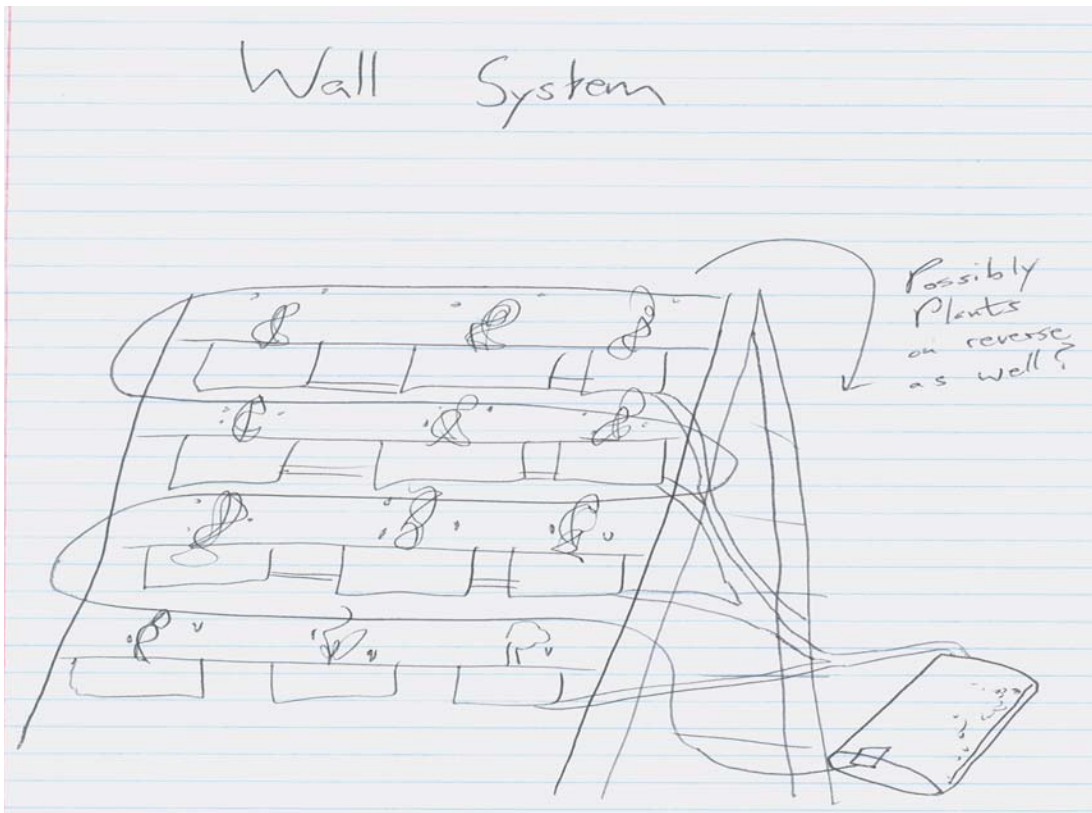 Wall System
Possibly
Plants
on reverse
as well?